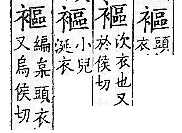 䙔頭
衣
䙔次衣也又
於侯切
䙔小兒
涎衣
䙔編枲頭衣
又烏侯切